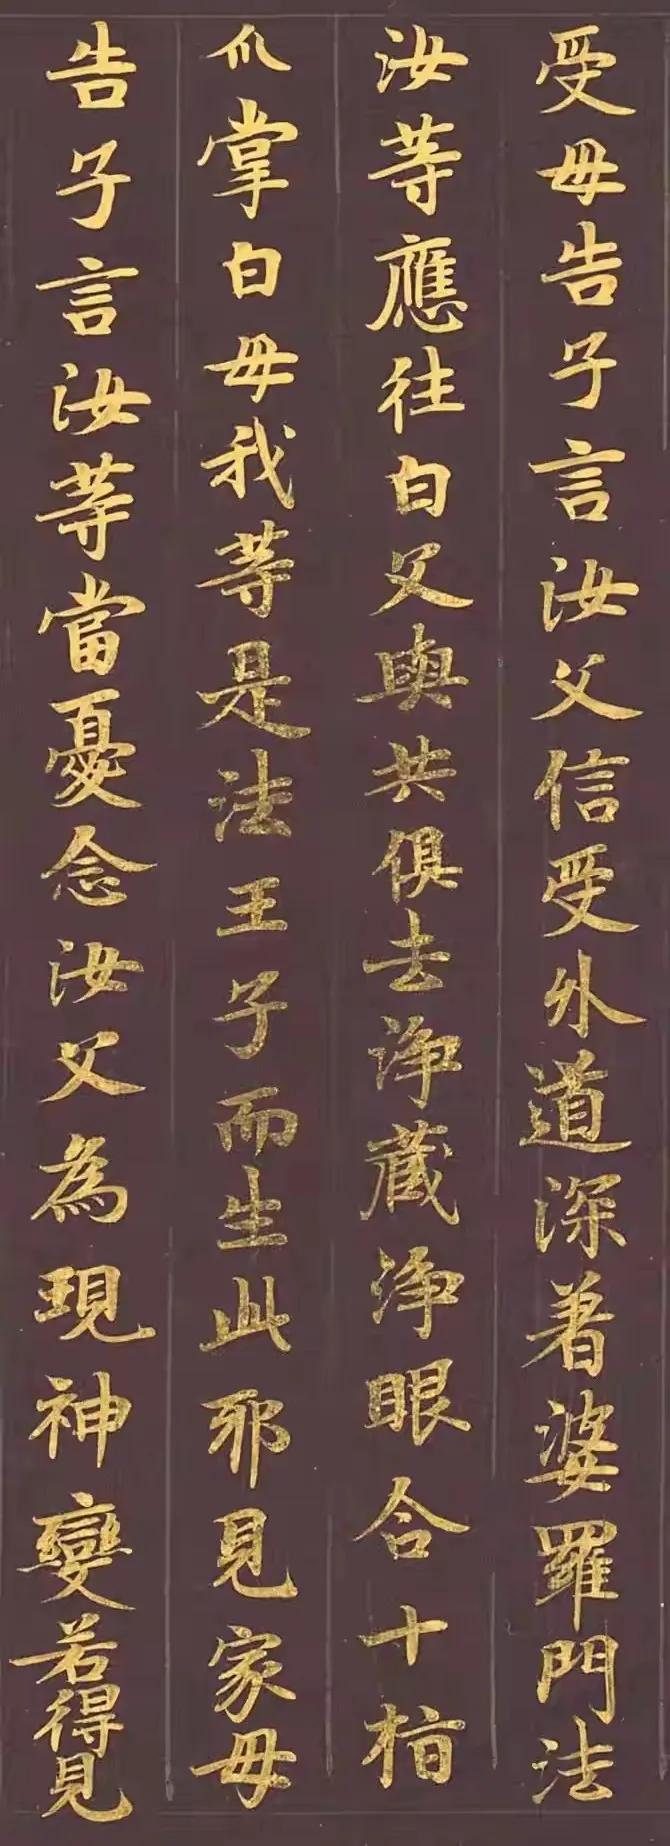 受母告子言汝父信受外道深著婆羅門法
汝等應往白父與共俱去淨藏淨眼合十指
爪掌白母我等是法王子而生此邪見家母
告子言汝等當憂念汝父為現神變若得見